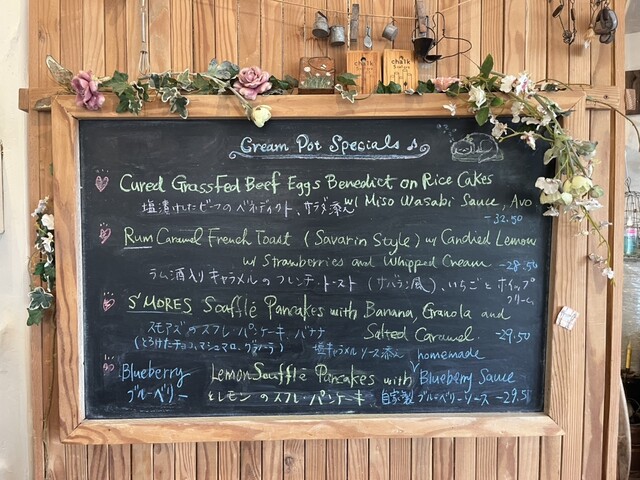 chalk
chalk
Cream Pot Specials
Cured Grassfed Beef Eggs Benedict on Rice Cakes
塩漬けしたビーフのベネディクト、サラダ添え w/ Miso Wasabi Sauce, Avo
-32.50
Rum Caramel French Toast (Savarin Style) w/ Candied Lemon
w/ Strawberries and Whipped Cream -28.50
ラム酒入りキャラメルのフレンチ・トースト (サバラン風)、いちごとホイップ
クリーム
S'MORES Soufflé Pancakes with Banana, Granola and
スモアズのスフレ・パンケーキ バナナ Salted Caramel -29.50
(とろけたチョコ、マシュマロ、グラノーラ) 塩キャラメルソース添え homemade
Blueberry Lemon Soufflé Pancakes with Blueberry Sauce
ブルーベリー とレモンのスフレ・パンケーキ 自家製ブルーベリーソース -29.5